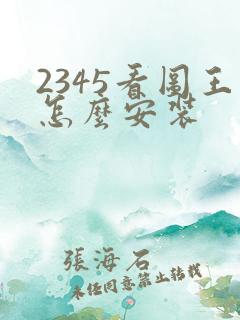 2345看圖王
怎麼安裝
張海石
未经同意禁止转载